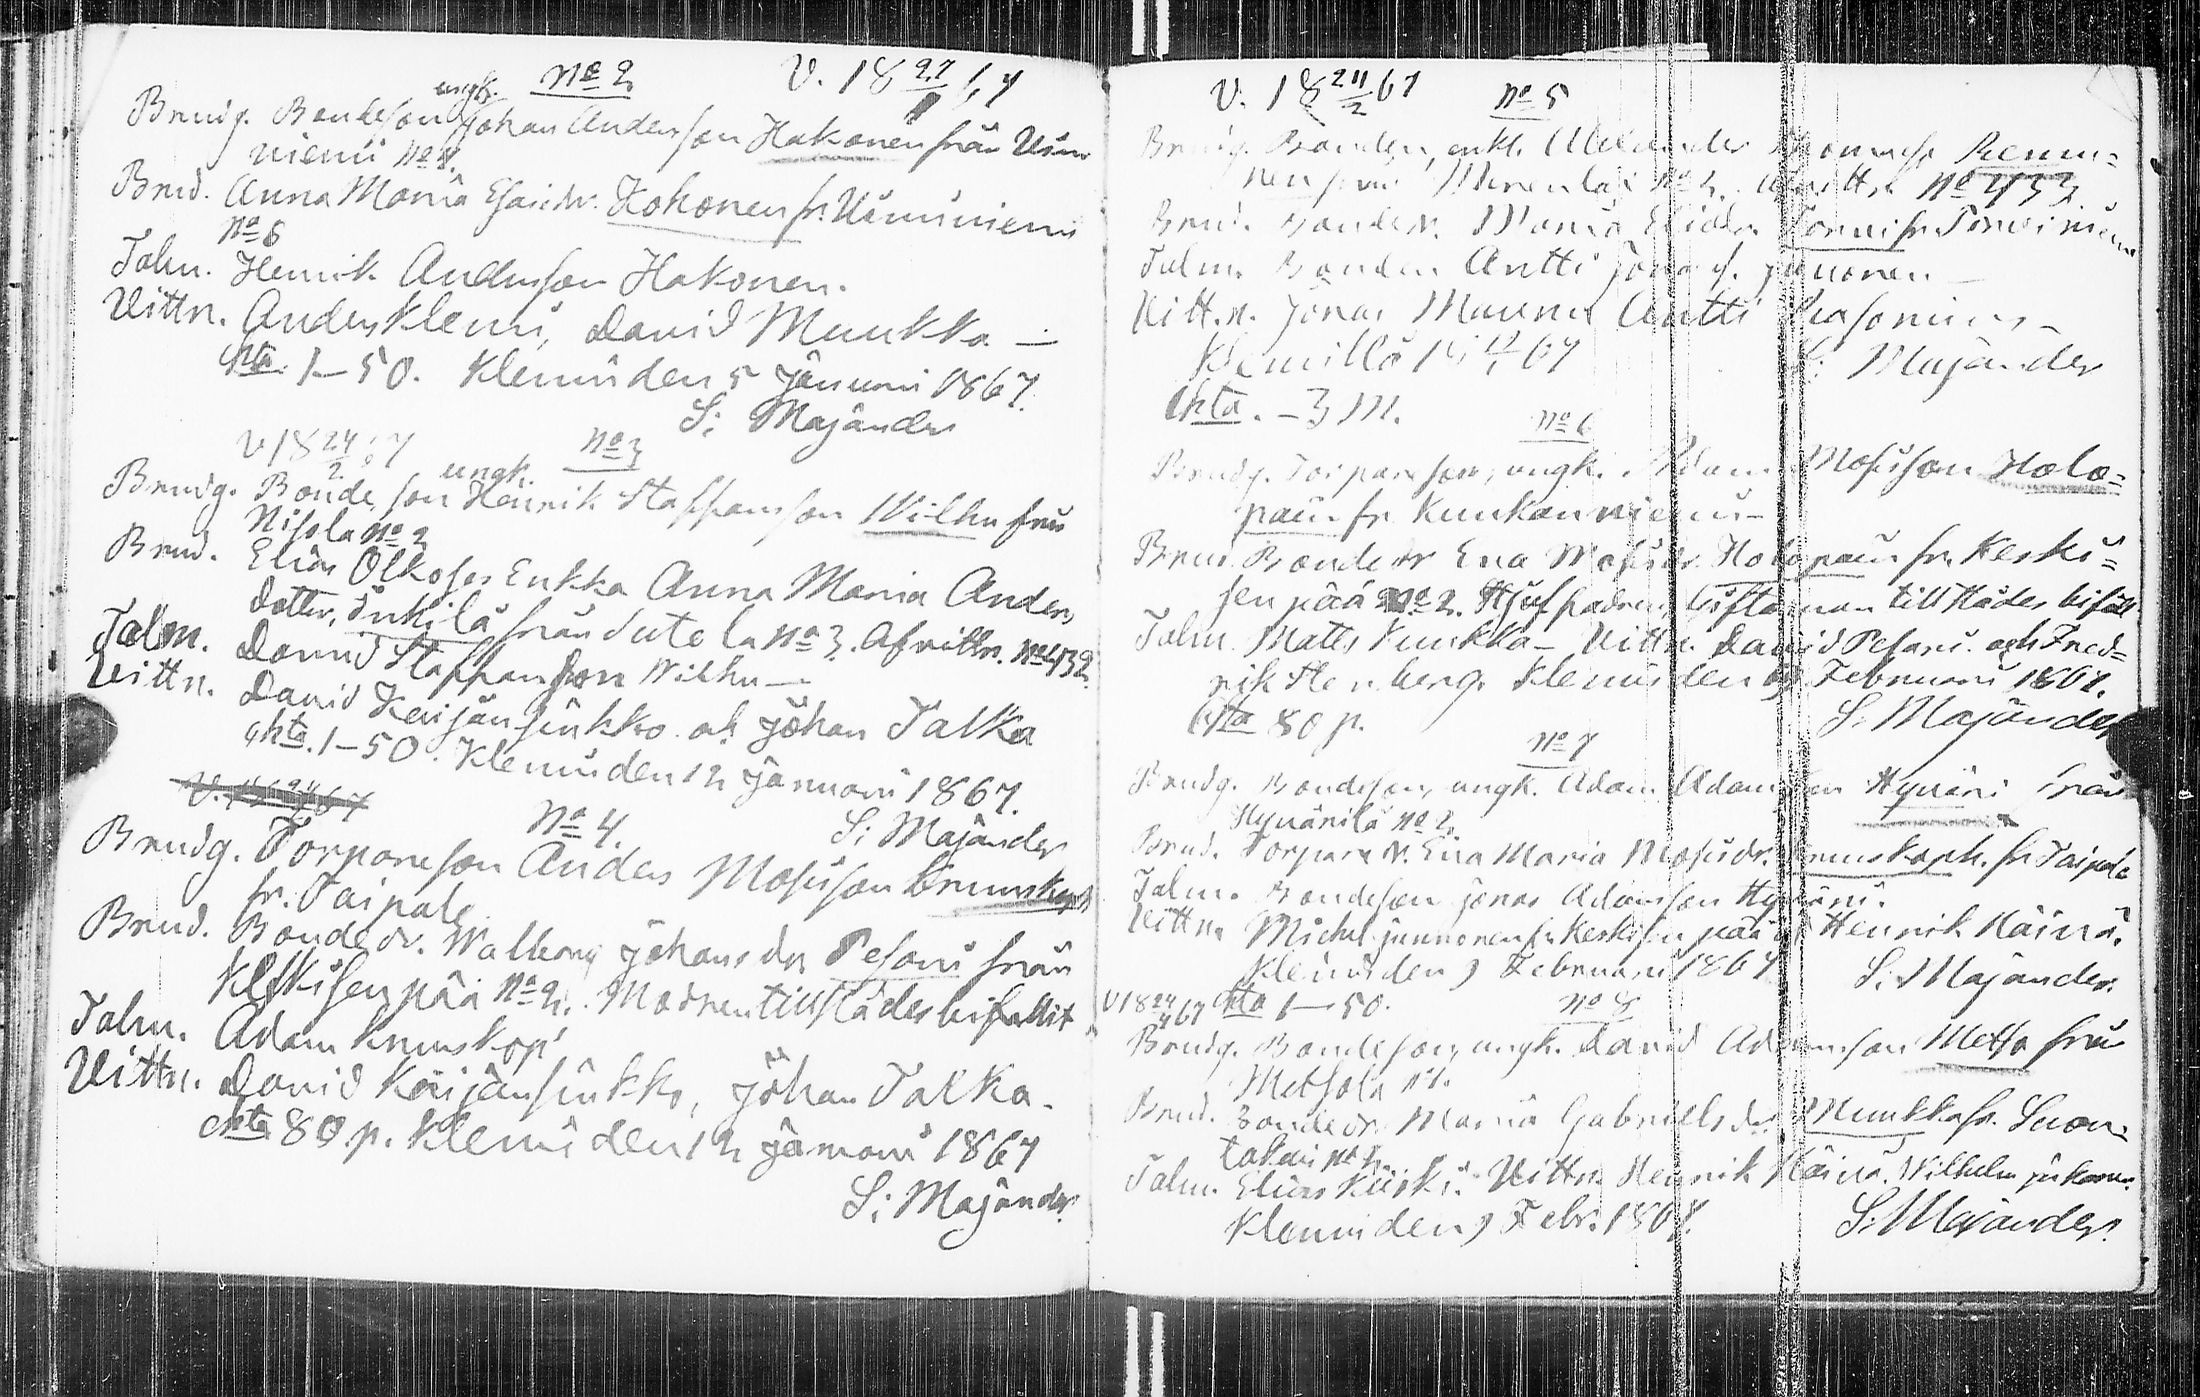 No 2 V. 18 27/1 67
Brudg. Bondeson ungk. Johan Andersson Hakonen från Uimi
niemi No 1.
Brud. Anna Maria Esaiedr. Kokonen fr. Uiminiemi
No 6
Talm. Henrik Andersson Hakonen.
Vittn. Anders Klemi, David Muukka —
Chta. 1–50. Klemis den 5 Januari 1867.
S: Majander
V 18 24/2 67 No 3
Brudg. Bonde son ungk. Henrik Staffansson Wilhu från
Nisola No 2
Brud. Elias Olkofes Enkka Anna Maria Anders
dotter, Inkilä från Sutela No 3. Afvittr. No 432.
Talm. David Staffansson Wilhu —
Vittn. David Keijänsinkko och Johan Talka
Chta. 1–50. Klemis den 12 Januari 1867.
S: Majander
V. 18 24/ 67
No 4.
Brudg. Torpareson Anders Mosisson Krunskoph
fr. Taipale
Brud. Bondedr. Walborg Johansdr Pesari från
Keskisenpää No 2. Modren tillstädes bifallit
Talm. Adam Krunskop
Vittn. David Käijänsinkko, Johan Talka.
Chta 80 p. Klemis den 12 Januari 1867
S: Majander.
V. 18 24/2 67 No 5
Brudg. Bonden, enkl. Alexander Thomass. Remu=
nen från No 2. Afvittr. No 433
Brud. Bondedr. Maria Eliedr. Torvi fr. Torviniemi
Talm. Bonden Antti Jonass. Junonen —
Vittn. Jonas Maunu Antti
Klemillä 18 67 S: Majander
Chta. – 3 M.
No 6
Brudg. Torpareson, ungk. Adam Mosisson Holo=
pain fr. Kuukanniemi —
Brud. Bondedr Eva Mosisdr. Holopain fr. Keski=
senpää No 2. Stjuffadren, Giftoman tillstädes bifall
Talm. Matts Kuukka — Vittn. David Pesari. och Fred=
rik Stenberg. Klemis den 9 Februari 1867.
Chta 80 p. S: Majander
No 7
Brudg. Bondeson, ungk. Adam Adamsson Hyväri från
Hyvärilä No 2.
Brud. Torparedr. Eva Maria Mosisdr. Krunskoph. fr. Taipale
Talm. Bondeson Jonas Adamsson Hyväri.
Vittn. Michel Junnonen fr. Keskisenpää och Henrik Häinä.
Klemis den 9 Februari 1867 S: Majander.
V 18 24/4 67 Chta 1–50. No 8
Brudg. Bondeson, ungk. David Adamsson Metso från
Metsola No 1.
Brud. Bondedr. Maria Gabrielsdr. Muukka fr. Suon=
takan No 2.
Talm. Elias Kiiski. Vittn. Henrik Häinä. Wilhelm
Klemis den 9 Febr. 1867. S: Majander.